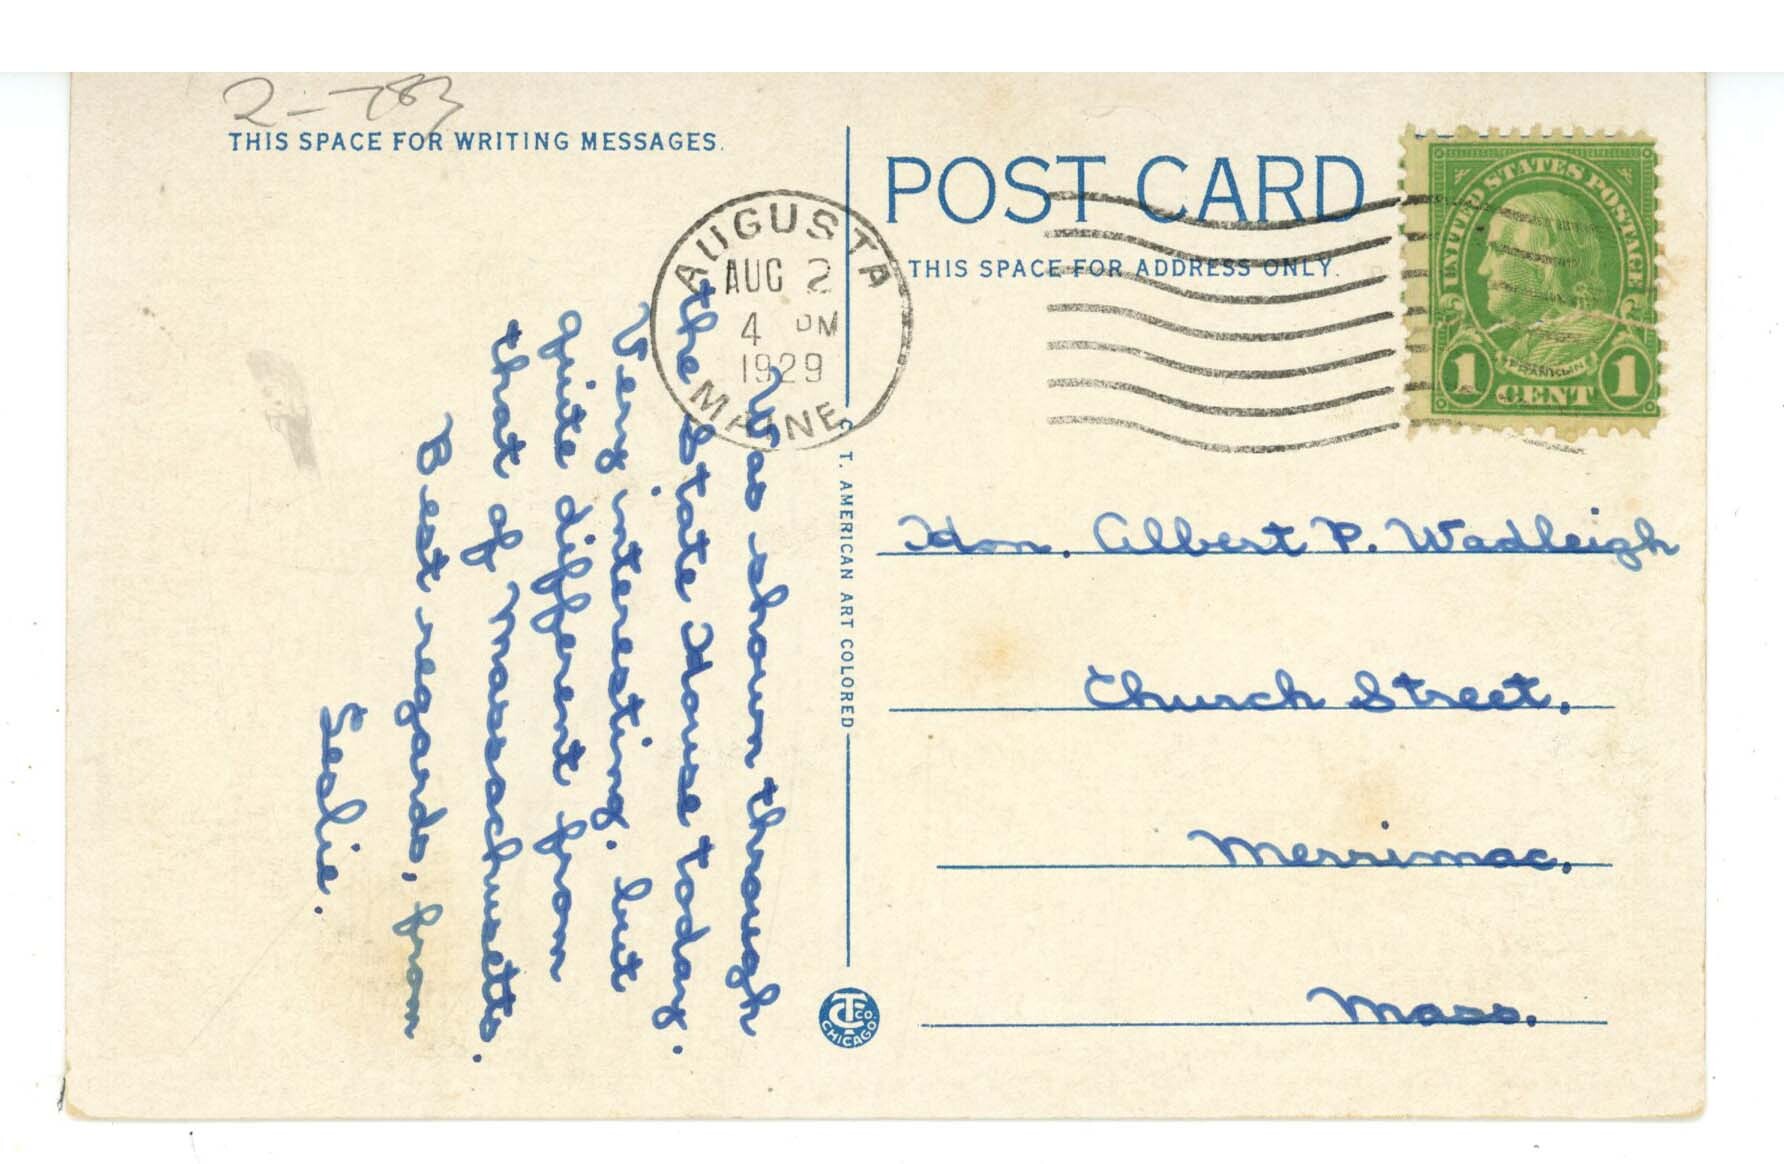 2-783
THIS SPACE FOR WRITING MESSAGES.
POST CARD
THIS SPACE FOR ADDRESS ONLY.
AUGUSTA
AUG 2
4 PM
1929
MAINE
UNITED STATES POSTAGE
FRANKLIN
1 CENT 1
Was shown through
the State House today.
Very interesting, but
quite different from
that of Massachusetts.
Best regards, from
Leslie.
C. T. AMERICAN ART COLORED
Hon. Albert P. Wadleigh
Church Street,
Merrimac,
Mass.
CT CO.
CHICAGO